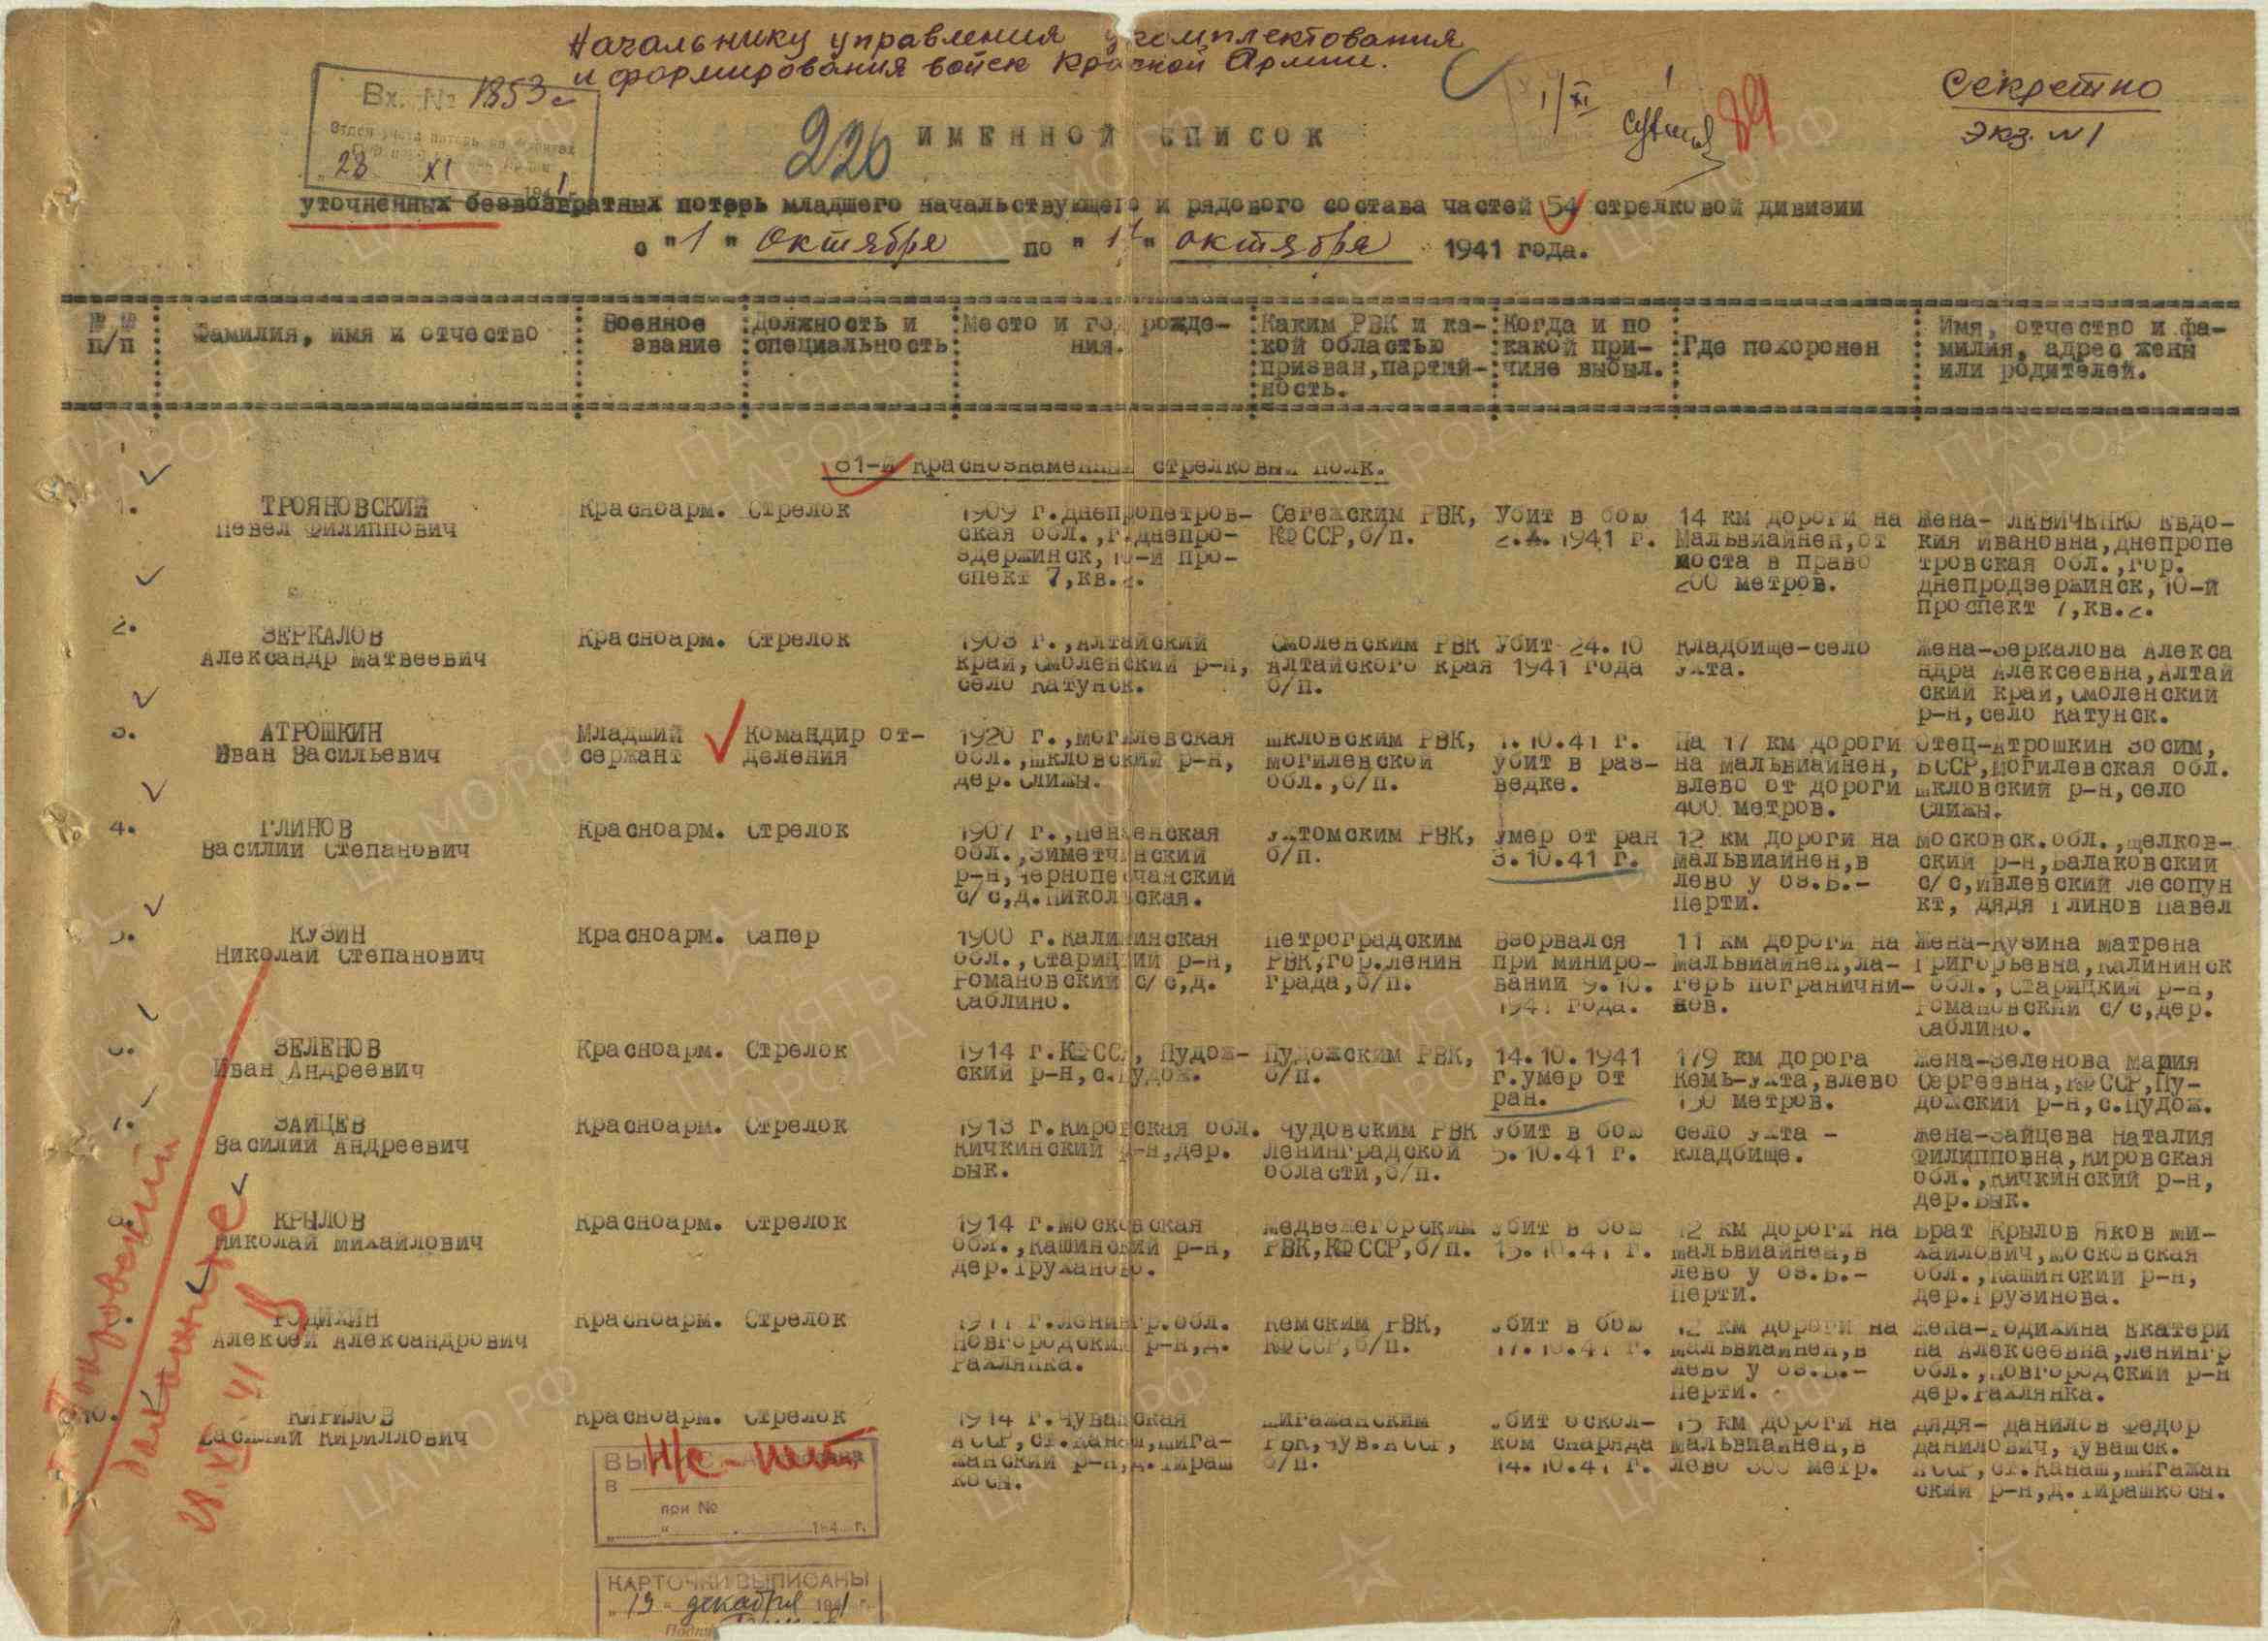 Начальнику управления укомплектования
и формирования войск Красной Армии.
Вх. № 1853с
28 XI 1941 г.
226
1/XI
89
Секретно
Экз. №1
ИМЕННОЙ СПИСОК
уточненных безвозвратных потерь младшего начальствующего и рядового состава частей 54 стрелковой дивизии
с "1" октября по " " октября 1941 года.
№ №
п/п
Фамилия, имя и отчество
Военное
звание
Должность и
специальность
Место и год рожде-
ния.
Каким РВК и ка-
кой областью
призван, партий-
ность.
Когда и по
какой при-
чине выбыл.
Где похоронен
Имя, отчество и фа-
милия, адрес жены
или родителей.
81-й Краснознаменный стрелковый полк.
1.
ТРОЯНОВСКИЙ
Павел Филиппович
Красноарм.
Стрелок
1909 г. Днепропетров-
ская обл., г. Днепро-
дзержинск, 10-й про-
спект 7, кв.2.
Сегежским РВК,
КФССР, б/п.
Убит в бою
1941 г.
14 км дороги на
Мальвиайнен, от
моста в право
200 метров.
Жена- ЛЕВИЧЕНКО Евдо-
кия Ивановна, Днепропе
тровская обл., гор.
Днепродзержинск, 10-й
проспект 7, кв.2.
2.
ЗЕРКАЛОВ
Александр Матвеевич
Красноарм.
Стрелок
1903 г., Алтайский
край, Смоленский р-н,
село Катунск.
Смоленским РВК
Алтайского края
б/п.
Убит 24.10
1941 года
Кладбище-село
Ухта.
Жена-Зеркалова Алекса
ндра Алексеевна, Алтай
ский край, Смоленский
р-н, село Катунск.
3.
АТРОШКИН
Иван Васильевич
Младший
сержант
Командир от-
деления
1920 г., Могилевская
обл., Шкловский р-н,
дер. Слижы.
Шкловским РВК,
Могилевской
обл., б/п.
1.10.41 г.
убит в раз-
ведке.
На 17 км дороги
на Мальвиайнен,
влево от дороги
400 метров.
Отец-Атрошкин Зосим,
БССР, Могилевская обл.
Шкловский р-н, село
Слижы.
4.
ГЛИНОВ
Василий Степанович
Красноарм.
Стрелок
1907 г., Пензенская
обл., Зиметчинский
р-н, Чернопесчанский
с/с, д. Никольская.
Ухтомским РВК,
б/п.
Умер от ран
3.10.41 г.
12 км дороги на
Мальвиайнен, в
лево у оз. Б.-
Перти.
Московск. обл., Щелков-
ский р-н, Балаковский
с/с, Ивлевский лесопун
кт, дядя Глинов Павел
5.
КУЗИН
Николай Степанович
Красноарм.
Сапер
1900 г. Калининская
обл., Старицкий р-н,
Романовский с/с, д.
Саблино.
Петроградским
РВК, гор. Ленин
града, б/п.
Взорвался
при миниро-
вании 9.10.
1941 года.
11 км дороги на
Мальвиайнен, ла-
герь погранични-
ков.
Жена-Кузина Матрена
Григорьевна, Калининск
обл., Старицкий р-н,
Романовский с/с, дер.
Саблино.
6.
ЗЕЛЕНОВ
Иван Андреевич
Красноарм.
Стрелок
1914 г. КФССР, Пудож-
ский р-н, с. Пудож.
Пудожским РВК,
б/п.
14.10.1941
г. умер от
ран.
179 км дорога
Кемь-Ухта, влево
150 метров.
Жена-Зеленова Мария
Сергеевна, КФССР, Пу-
дожский р-н, с. Пудож.
7.
ЗАЙЦЕВ
Василий Андреевич
Красноарм.
Стрелок
1913 г. Кировская обл.
Кичкинский р-н, дер.
Бык.
Чудовским РВК
Ленинградской
области, б/п.
Убит в бою
5.10.41 г.
Село Ухта -
кладбище.
Жена-Зайцева Наталия
Филипповна, Кировская
обл., Кичкинский р-н,
дер. Бык.
8.
КРЫЛОВ
Николай Михайлович
Красноарм.
Стрелок
1914 г. Московская
обл., Кашинский р-н,
дер. Труханово.
Медвежегорским
РВК, КФССР, б/п.
Убит в бою
15.10.41 г.
12 км дороги на
Мальвиайнен, в
лево у оз. Б.-
Перти.
Брат Крылов Яков Ми-
хайлович, Московская
обл., Кашинский р-н,
дер. Грузинова.
9.
РОДИХИН
Алексей Александрович
Красноарм.
Стрелок
1911 г. Ленингр. обл.
Новгородский р-н, д.
Рахлянка.
Кемским РВК,
КФССР, б/п.
Убит в бою
17.10.41 г.
12 км дороги на
Мальвиайнен, в
лево у оз. Б.-
Перти.
Жена-Родихина Екатери
на Алексеевна, Ленингр
обл., Новгородский р-н
дер. Рахлянка.
10.
КИРИЛОВ
Василий Кириллович
Красноарм.
Стрелок
1914 г. Чувашская
АССР, ст. Канаш, Шига-
жанский р-н, д. Тираш
косы.
Шигажанским
РВК, Чув. АССР,
б/п.
Убит оскол-
ком снаряда
14.10.41 г.
15 км дороги на
Мальвиайнен, в
лево 300 метр.
Дядя- Данилов Федор
Данилович, Чувашск.
АССР, ст. Канаш, Шигажан
ский р-н, д. Тирашкосы.
28.XI 41
н/с - нет
в
при №
194 г.
КАРТОЧКИ ВЫПИСАНЫ
"19" декабря 1941 г.